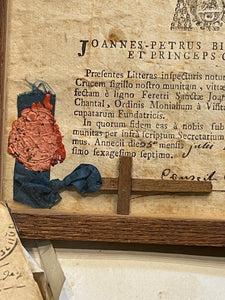 JOANNES-PETRUS BI
ET PRINCEPS
Præsentes Litteras inspecturis notum
Crucem sigillo nostro munitam, vittæ
fectam è ligno Feretri Sanctæ Joan
Chantal, Ordinis Monialium à Visit
cupatarum Fundatricis.
In quorum fidem eas à nobis sub
munitas per infrà scriptum Secretarium
mus. Annecii die mensis julii
simo sexagesimo septimo.